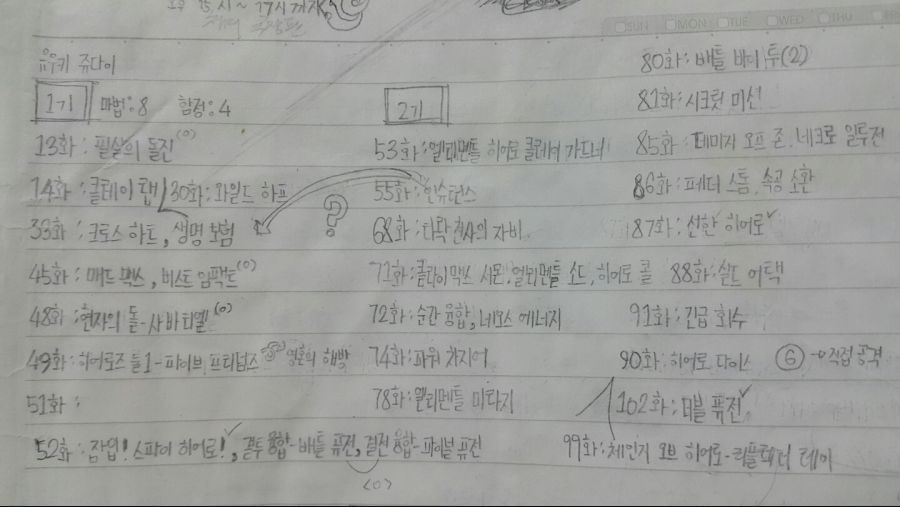 오후 15시~17시까지
유우키 쥬다이
1기 마법:8 함정:4
13화: 필살의 돌진(o)
14화: 클레이 랩 30화: 와일드 하프
33화: 크로스 하트, 생명 보험
45화: 매드 맥스, 비스트 임팩트(o)
48화: 현자의 돌-사바티엘(o)
49화: 히어로즈 룰1-파이브 프리덤즈 영혼의 해방
51화:
52화: 잠입! 스파이 히어로!✓, 결투융합-배틀 퓨전, 결전융합-파이널 퓨전
(o)
2기
53화: 엘리멘틀 히어로 클레이 가드너
55화: 인슈런스
?
68화: 타락 천사의 자비
71화: 클라이맥스 시몬, 엘리멘틀 소드, 히어로 콜
72화: 순간 융합, 네오스 에너지
74화: 파워 차지어
78화: 엘리멘틀 미라지
SUN MON TUE WED THU
80화: 배틀 바디 투(2)
81화: 시크릿 미션
85화: 데미지 오프 존, 네크로 일루전
86화: 페더 스톰, 속공 소환
87화: 선한 히어로✓
88화: 쉴드 어택
91화: 긴급 회수
90화: 히어로 다이스 ⑥→직접 공격
102화: 더블 퓨전✓
99화: 체인지 오브 히어로-리플렉터 레이